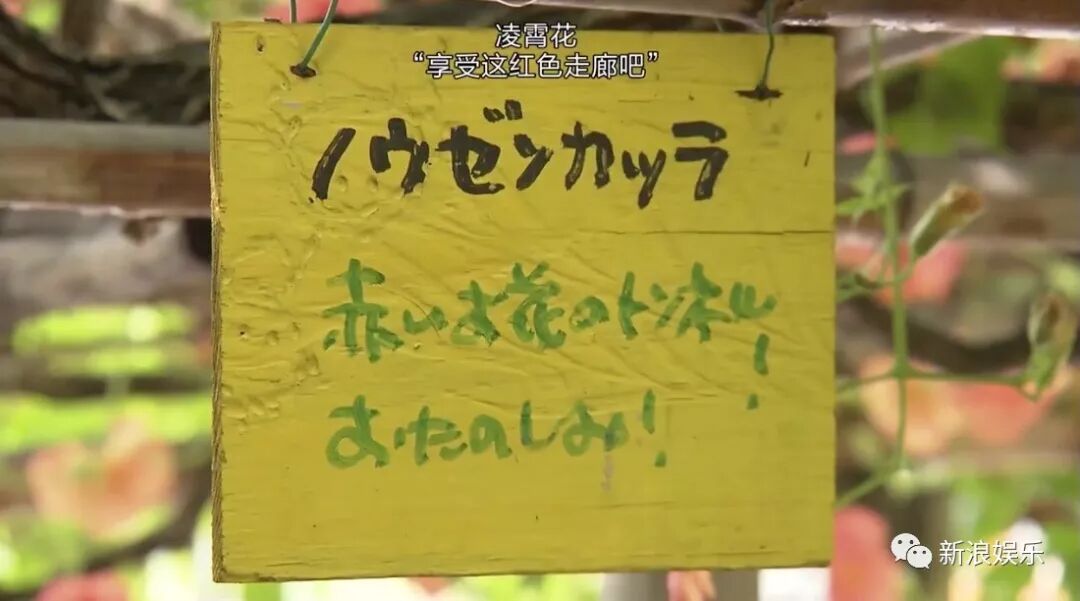 凌霄花
“享受这红色走廊吧”
ノウゼンカツラ
赤いお花のトンネル!
おたのしみ!
新浪娱乐